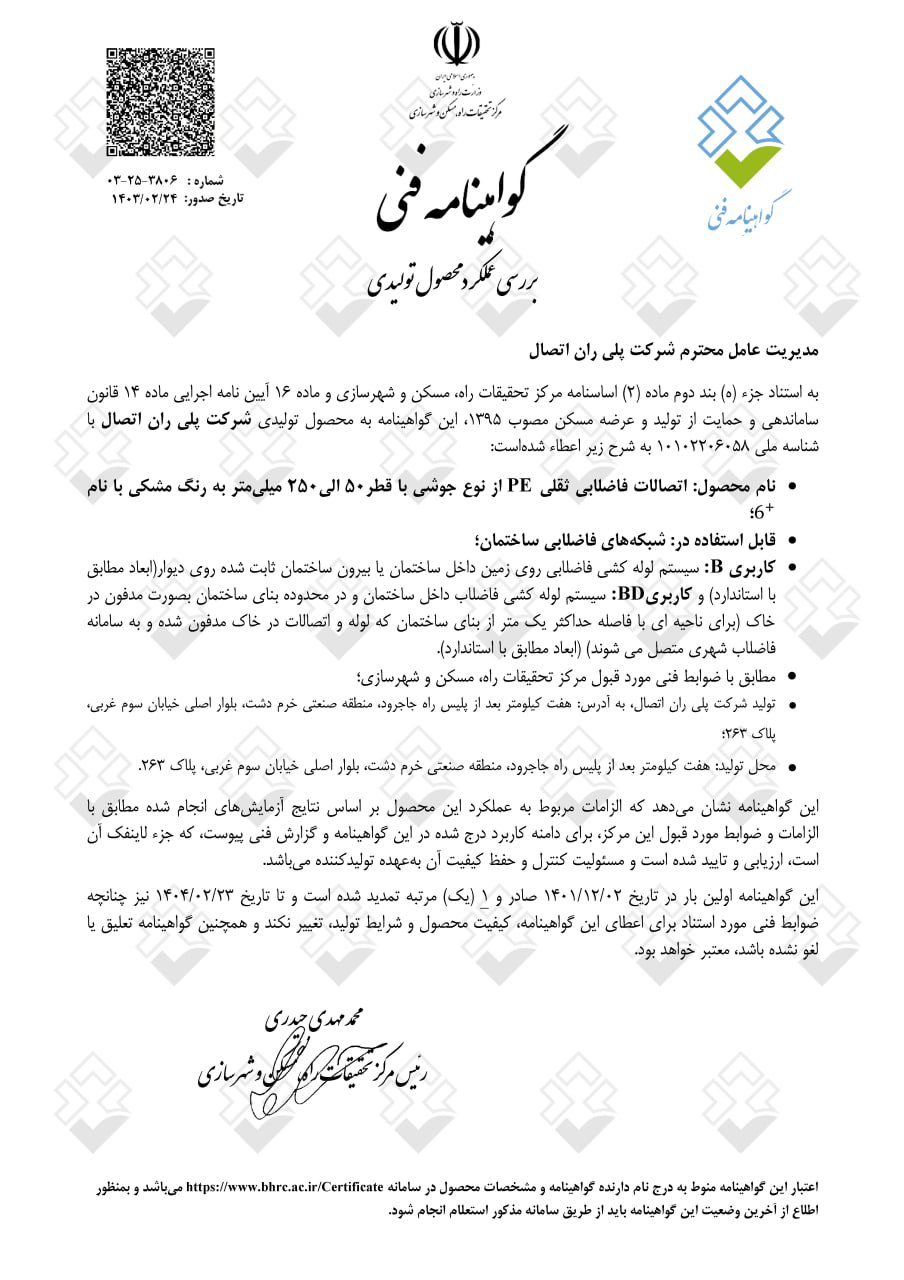 جمهوری اسلامی ایران
وزارت راه و شهرسازی
مرکز تحقیقات راه، مسکن و شهرسازی
گواهینامه فنی
شماره : ۰۳-۲۵-۳۸۰۶
تاریخ صدور: ۱۴۰۳/۰۲/۲۴
گواهینامه فنی
بررسی عملکرد محصول تولیدی
مدیریت عامل محترم شرکت پلی ران اتصال
به استناد جزء (ه) بند دوم ماده (۲) اساسنامه مرکز تحقیقات راه، مسکن و شهرسازی و ماده ۱۶ آیین نامه اجرایی ماده ۱۴ قانون
ساماندهی و حمایت از تولید و عرضه مسکن مصوب ۱۳۹۵، این گواهینامه به محصول تولیدی شرکت پلی ران اتصال با
شناسه ملی ۱۰۱۰۲۲۰۶۰۵۸ به شرح زیر اعطاء شده‌است:
• نام محصول: اتصالات فاضلابی ثقلی PE از نوع جوشی با قطر۵۰ الی۲۵۰ میلی‌متر به رنگ مشکی با نام
6⁺؛
• قابل استفاده در: شبکه‌های فاضلابی ساختمان؛
• کاربری B: سیستم لوله کشی فاضلابی روی زمین داخل ساختمان یا بیرون ساختمان ثابت شده روی دیوار(ابعاد مطابق
با استاندارد) و کاربریBD: سیستم لوله کشی فاضلاب داخل ساختمان و در محدوده بنای ساختمان بصورت مدفون در
خاک (برای ناحیه ای با فاصله حداکثر یک متر از بنای ساختمان که لوله و اتصالات در خاک مدفون شده و به سامانه
فاضلاب شهری متصل می شوند) (ابعاد مطابق با استاندارد).
• مطابق با ضوابط فنی مورد قبول مرکز تحقیقات راه، مسکن و شهرسازی؛
• تولید شرکت پلی ران اتصال، به آدرس: هفت کیلومتر بعد از پلیس راه جاجرود، منطقه صنعتی خرم دشت، بلوار اصلی خیابان سوم غربی،
پلاک ۲۶۳؛
• محل تولید: هفت کیلومتر بعد از پلیس راه جاجرود، منطقه صنعتی خرم دشت، بلوار اصلی خیابان سوم غربی، پلاک ۲۶۳.
این گواهینامه نشان می‌دهد که الزامات مربوط به عملکرد این محصول بر اساس نتایج آزمایش‌های انجام شده مطابق با
الزامات و ضوابط مورد قبول این مرکز، برای دامنه کاربرد درج شده در این گواهینامه و گزارش فنی پیوست، که جزء لاینفک آن
است، ارزیابی و تایید شده است و مسئولیت کنترل و حفظ کیفیت آن به‌عهده تولیدکننده می‌باشد.
این گواهینامه اولین بار در تاریخ ۱۴۰۱/۱۲/۰۲ صادر و ۱ (یک) مرتبه تمدید شده است و تا تاریخ ۱۴۰۴/۰۲/۲۳ نیز چنانچه
ضوابط فنی مورد استناد برای اعطای این گواهینامه، کیفیت محصول و شرایط تولید، تغییر نکند و همچنین گواهینامه تعلیق یا
لغو نشده باشد، معتبر خواهد بود.
محمدمهدی حیدری
رئیس مرکز تحقیقات راه، مسکن و شهرسازی
اعتبار این گواهینامه منوط به درج نام دارنده گواهینامه و مشخصات محصول در سامانه https://www.bhrc.ac.ir/Certificate می‌باشد و بمنظور
اطلاع از آخرین وضعیت این گواهینامه باید از طریق سامانه مذکور استعلام انجام شود.